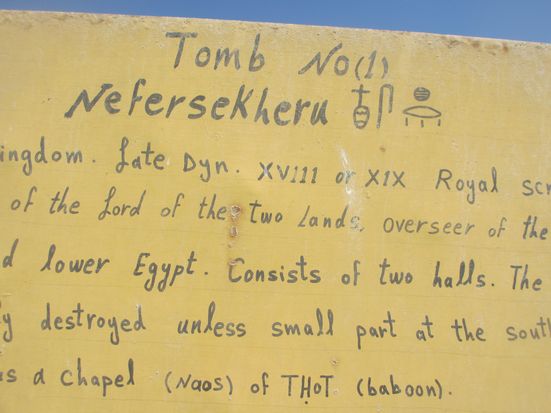 Tomb No(1)
Nefersekheru
ingdom. Late Dyn. XVIII or XIX Royal scr
of the Lord of the two Lands, overseer of the
d lower Egypt. Consists of two halls. The
y destroyed unless small part at the south
as a chapel (Naos) of THOT (baboon).